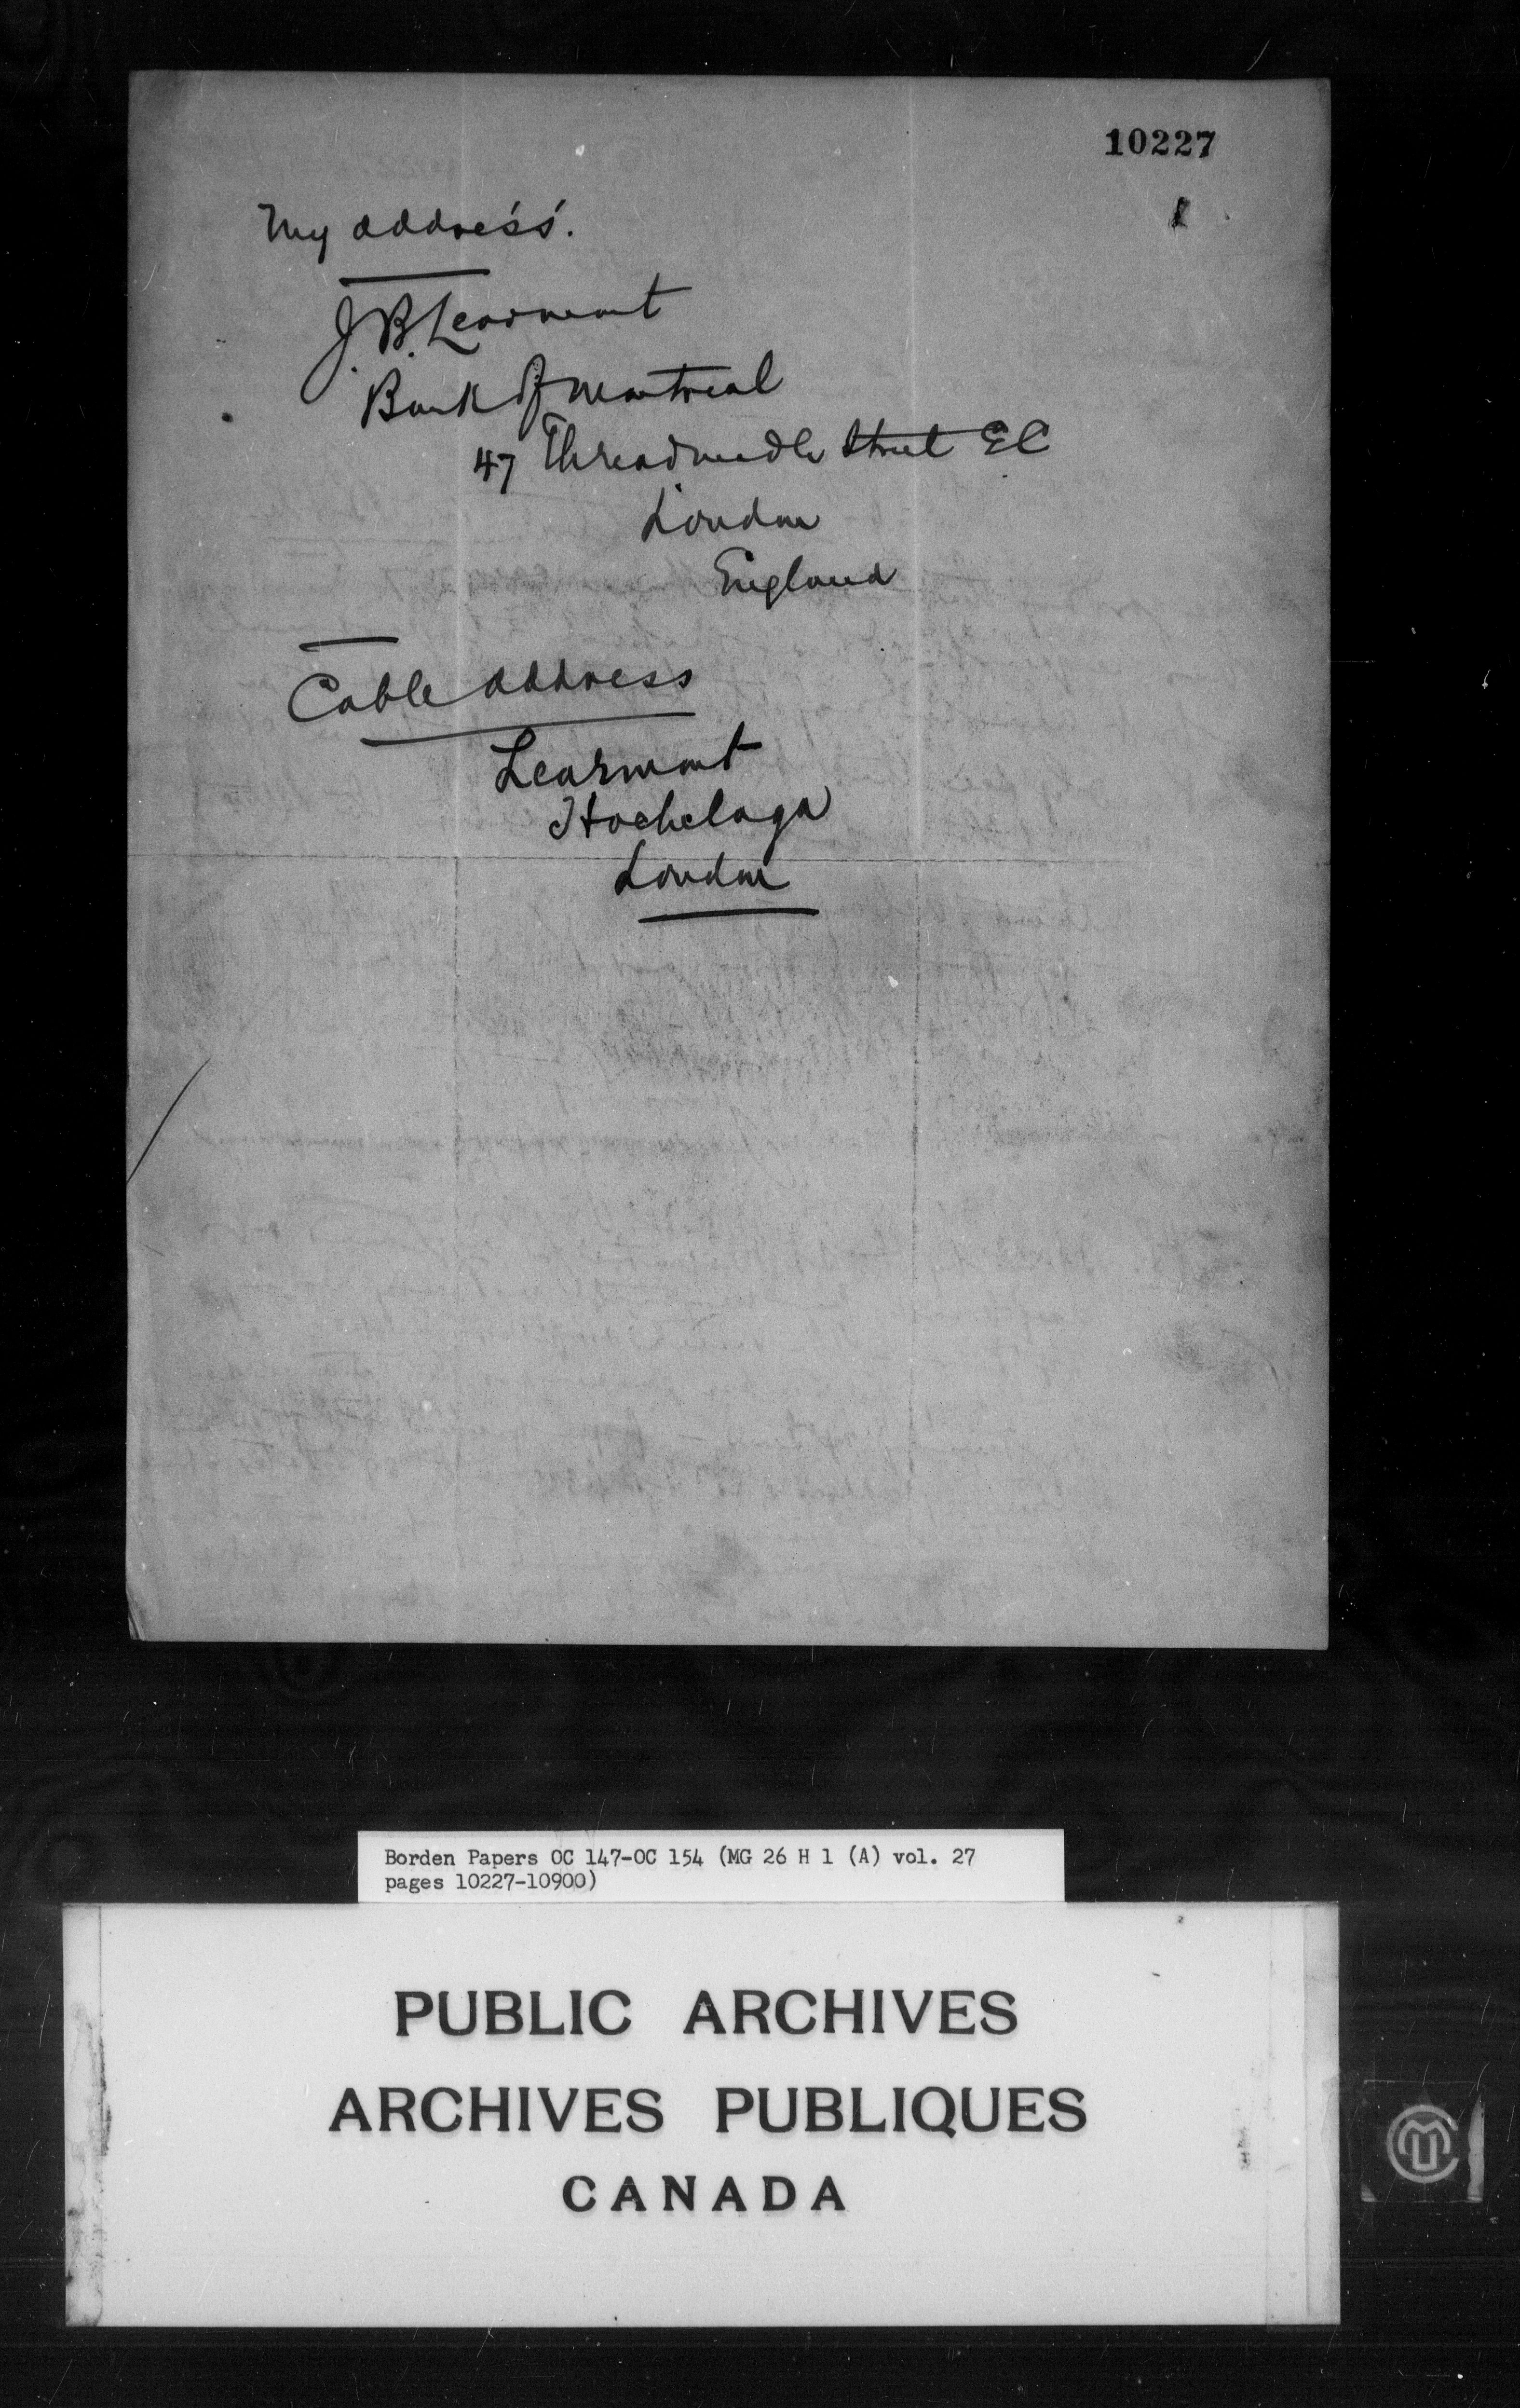 10227
1
My address.
J.B. Learmont
Bank of Montreal
47 Threadneedle Street E C
London
England
Cable address
Learmont
Hochelaga
London
Borden Papers OC 147-OC 154 (MG 26 H 1 (A) vol. 27
pages 10227-10900)
PUBLIC ARCHIVES
ARCHIVES PUBLIQUES
CANADA